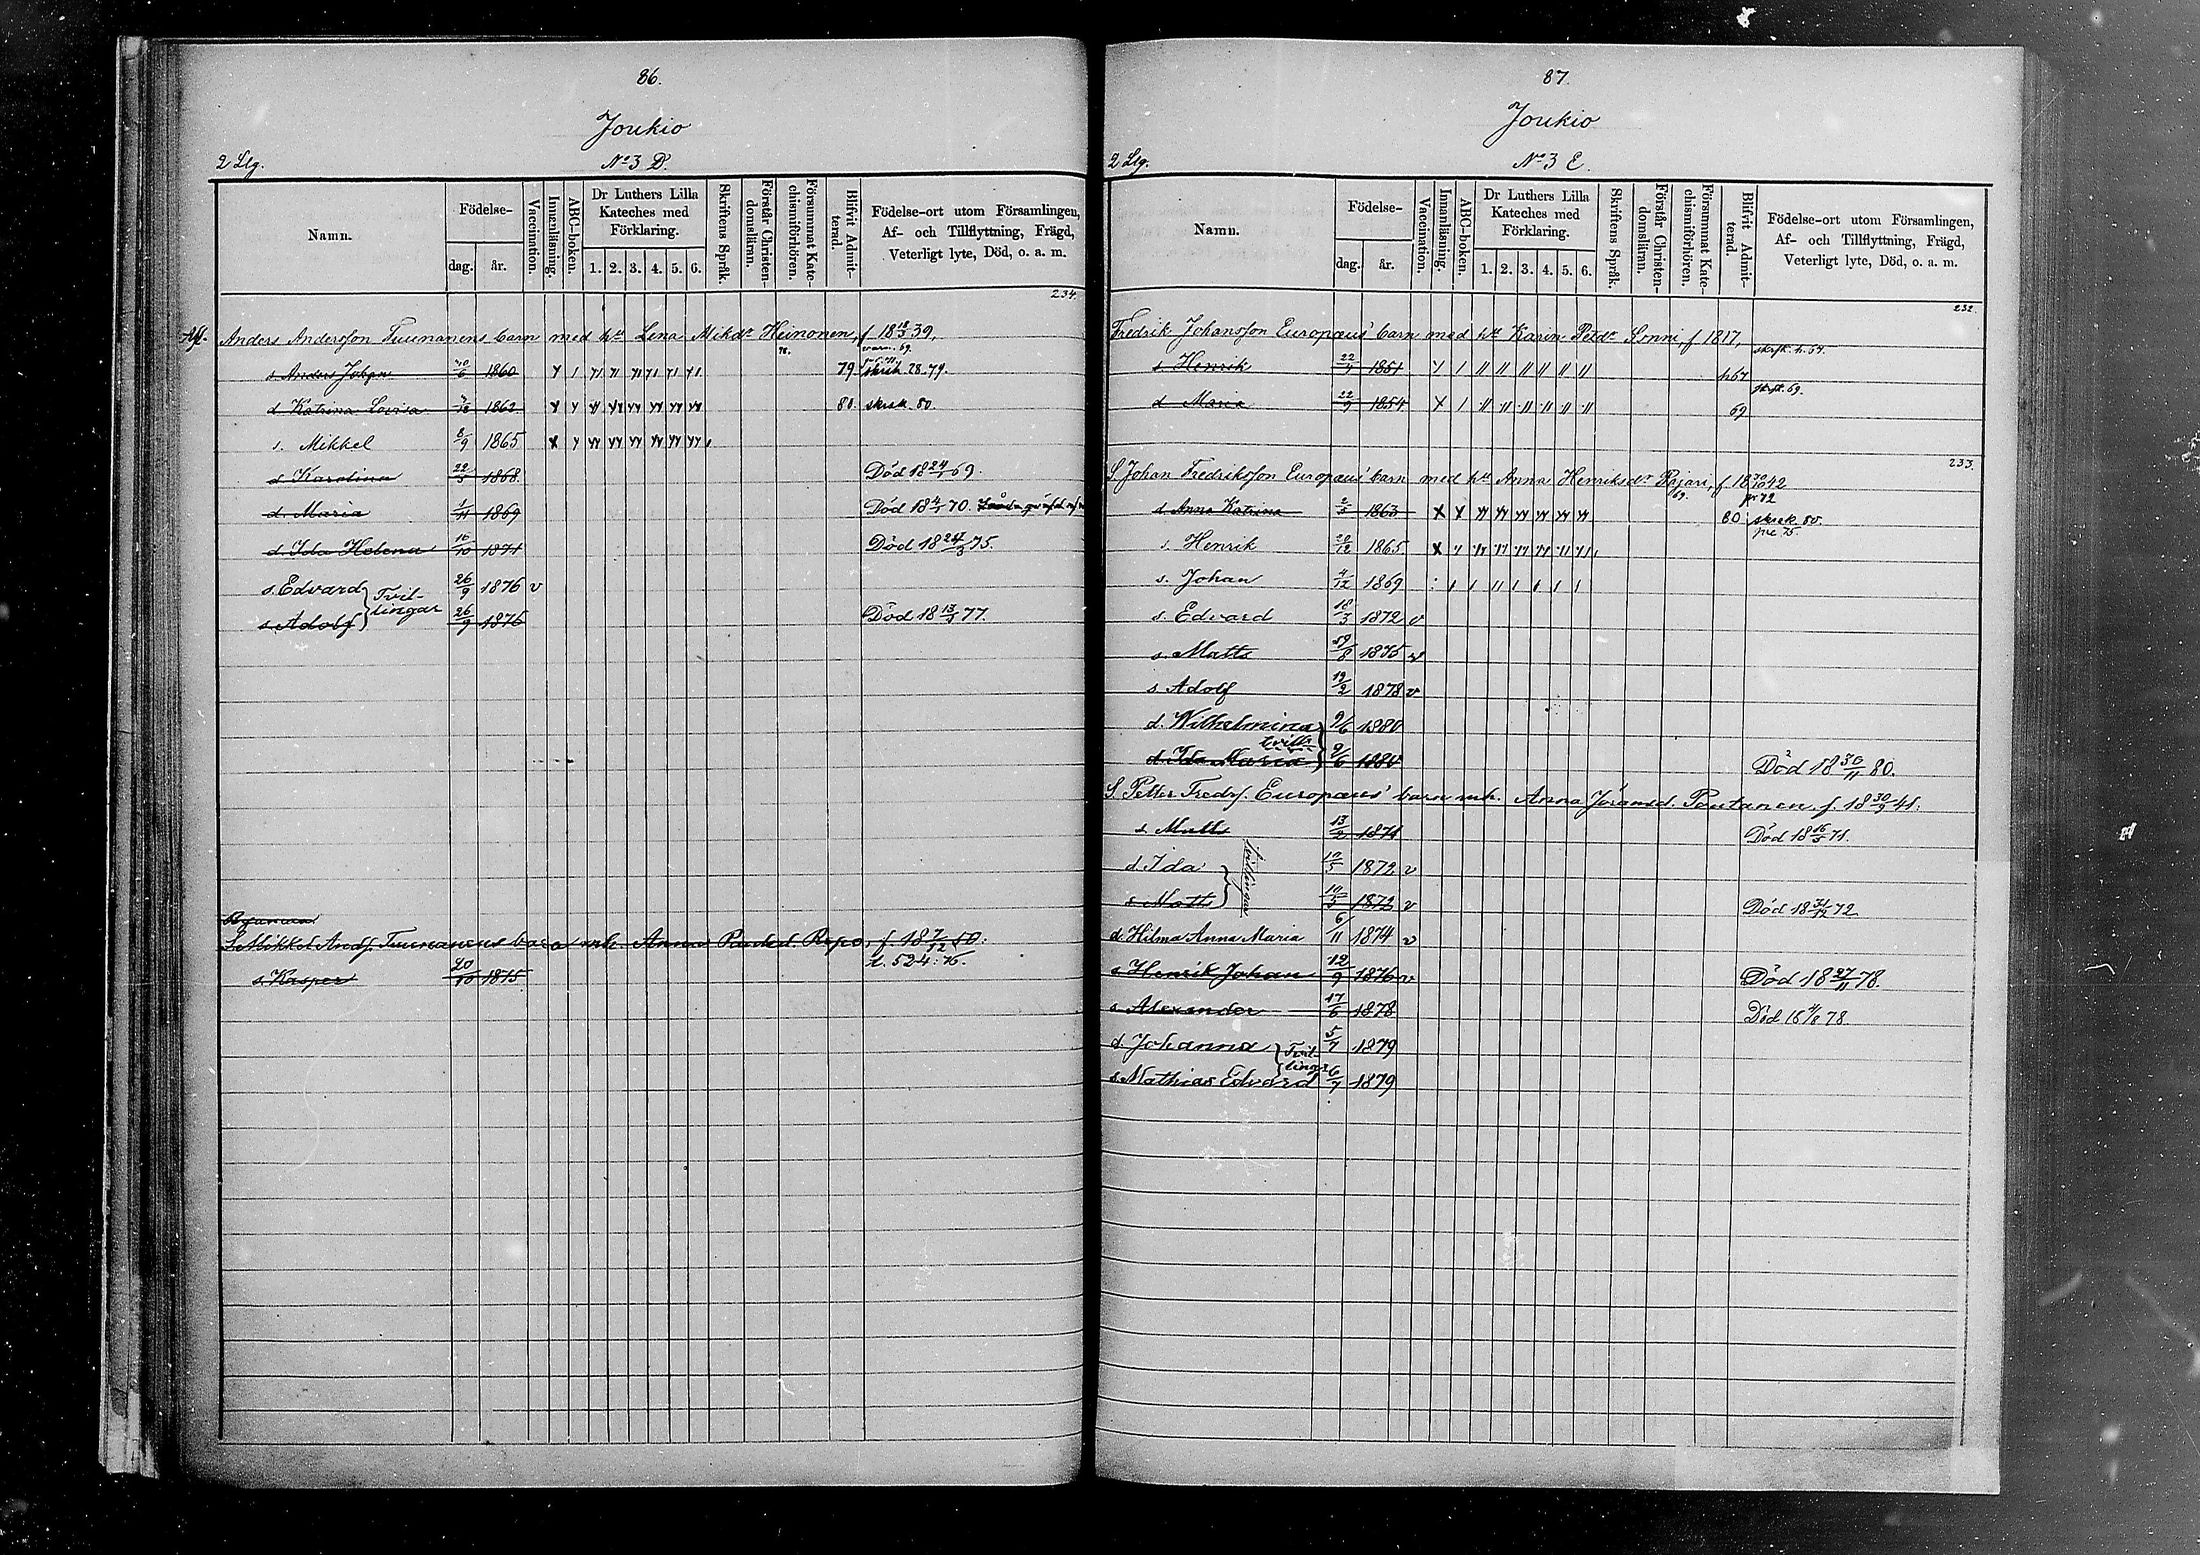 86.
Joukio
2 Llg.
No 3 D.
Namn.
Födelse-
dag.
år.
Vaccination.
Innanläsning.
ABC-boken.
Dr Luthers Lilla Kateches med Förklaring.
1. 2. 3. 4. 5. 6.
Skriftens Språk.
Förstår Christendomsläran.
Försummat Katechismiförhören.
Blifvit Admitterad.
Födelse-ort utom Församlingen, Af- och Tillflyttning, Frägd, Veterligt lyte, Död, o. a. m.
234.
Anders Andersson Tuunanens barn med h. Lena Mikdr Heinonen, f 18 39,
s. Anders Johan 1860 79 skrsk. 28. 79.
d. Katrina Lovisa 1862 80. skrsk. 80.
s. Mikkel 8/9 1865
d. Karolina 1868. Död 18 69.
d. Maria 1/11 1869 Död 18 70.
d. Ida Helena 16/10 1871 Död 18 24/3 75.
s. Edvard 26/9 1876 v
Tvillingar
s. Adolf 26/9 1876 Död 18 77.
S. Mikkel Andf. Tuunanens barn mh. Anna Repo, f. 18 7/12 50:
s. Kasper 20/10 1875 t. 524: 76.
87.
Joukio
2 Llg.
No 3 E.
Namn.
Födelse-
dag.
år.
Vaccination.
Innanläsning.
ABC-boken.
Dr Luthers Lilla Kateches med Förklaring.
1. 2. 3. 4. 5. 6.
Skriftens Språk.
Förstår Christendomsläran.
Försummat Katechismiförhören.
Blifvit Admitterad.
Födelse-ort utom Församlingen, Af- och Tillflyttning, Frägd, Veterligt lyte, Död, o. a. m.
232.
Fredrik Johansson Europæus' barn med h. Karin Petdr Sinni, f 1817,
s. Henrik 1851 h 67
d. Maria 22/9 1854 69
233.
S. Johan Fredriksson Europæus' barn med h. Anna Henriksdr Pajari, f 18 42
d. Anna Katrina 1863 80 skrsk. 80.
s. Henrik 20/12 1865
s. Johan 4/12 1869
s. Edvard 18/3 1872 v
s. Matts 1875 v
s. Adolf 19/2 1878 v
d. Wilhelmina 9/6 1880
tvill.
d. Ida Maria 9/6 1880 Död 18 30/11 80.
S. Petter Fredrf. Europæus' barn mh. Anna Jöransd. Pontanen, f. 18 30/9 41.
s. Matts 13/2 1871 Död 18 71.
d. Ida 10/5 1872 v
tvillingar
s. Matts 10/5 1872 v Död 18 72
d. Hilma Anna Maria 6/11 1874 v
s. Henrik Johan 12/9 1876 v Död 18 27/11 78.
s. Alexander 17/6 1878 Död 18 78.
d. Johanna 5/7 1879
Tvillingar
s. Mathias Edvard 6/7 1879